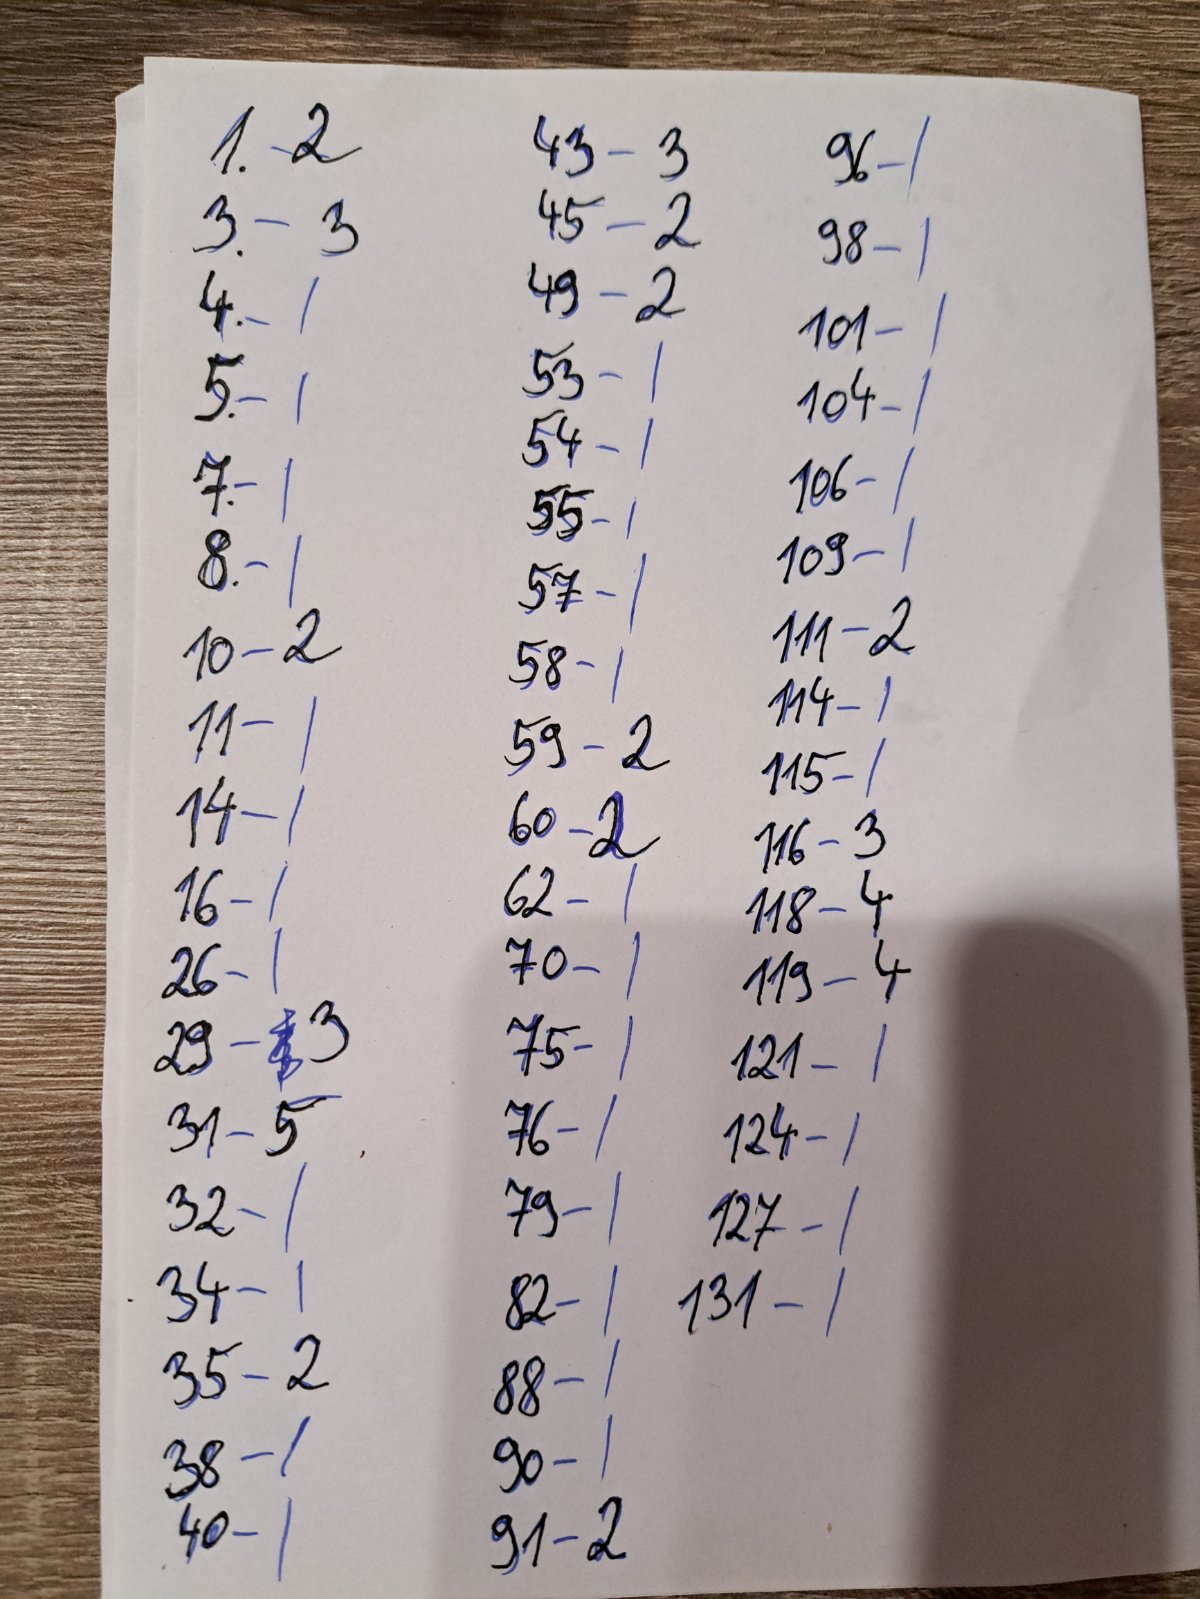 1. - 2
3. - 3
4. - 1
5. - 1
7. - 1
8. - 1
10 - 2
11 - 1
14 - 1
16 - 1
26 - 1
29 - 3
31 - 5
32 - 1
34 - 1
35 - 2
38 - 1
40 - 1
43 - 3
45 - 2
49 - 2
53 - 1
54 - 1
55 - 1
57 - 1
58 - 1
59 - 2
60 - 2
62 - 1
70 - 1
75 - 1
76 - 1
79 - 1
82 - 1
88 - 1
90 - 1
91 - 2
96 - 1
98 - 1
101 - 1
104 - 1
106 - 1
109 - 1
111 - 2
114 - 1
115 - 1
116 - 3
118 - 4
119 - 4
121 - 1
124 - 1
127 - 1
131 - 1